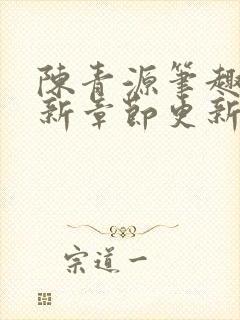 陳青源筆趣
新章節更新
宗道一